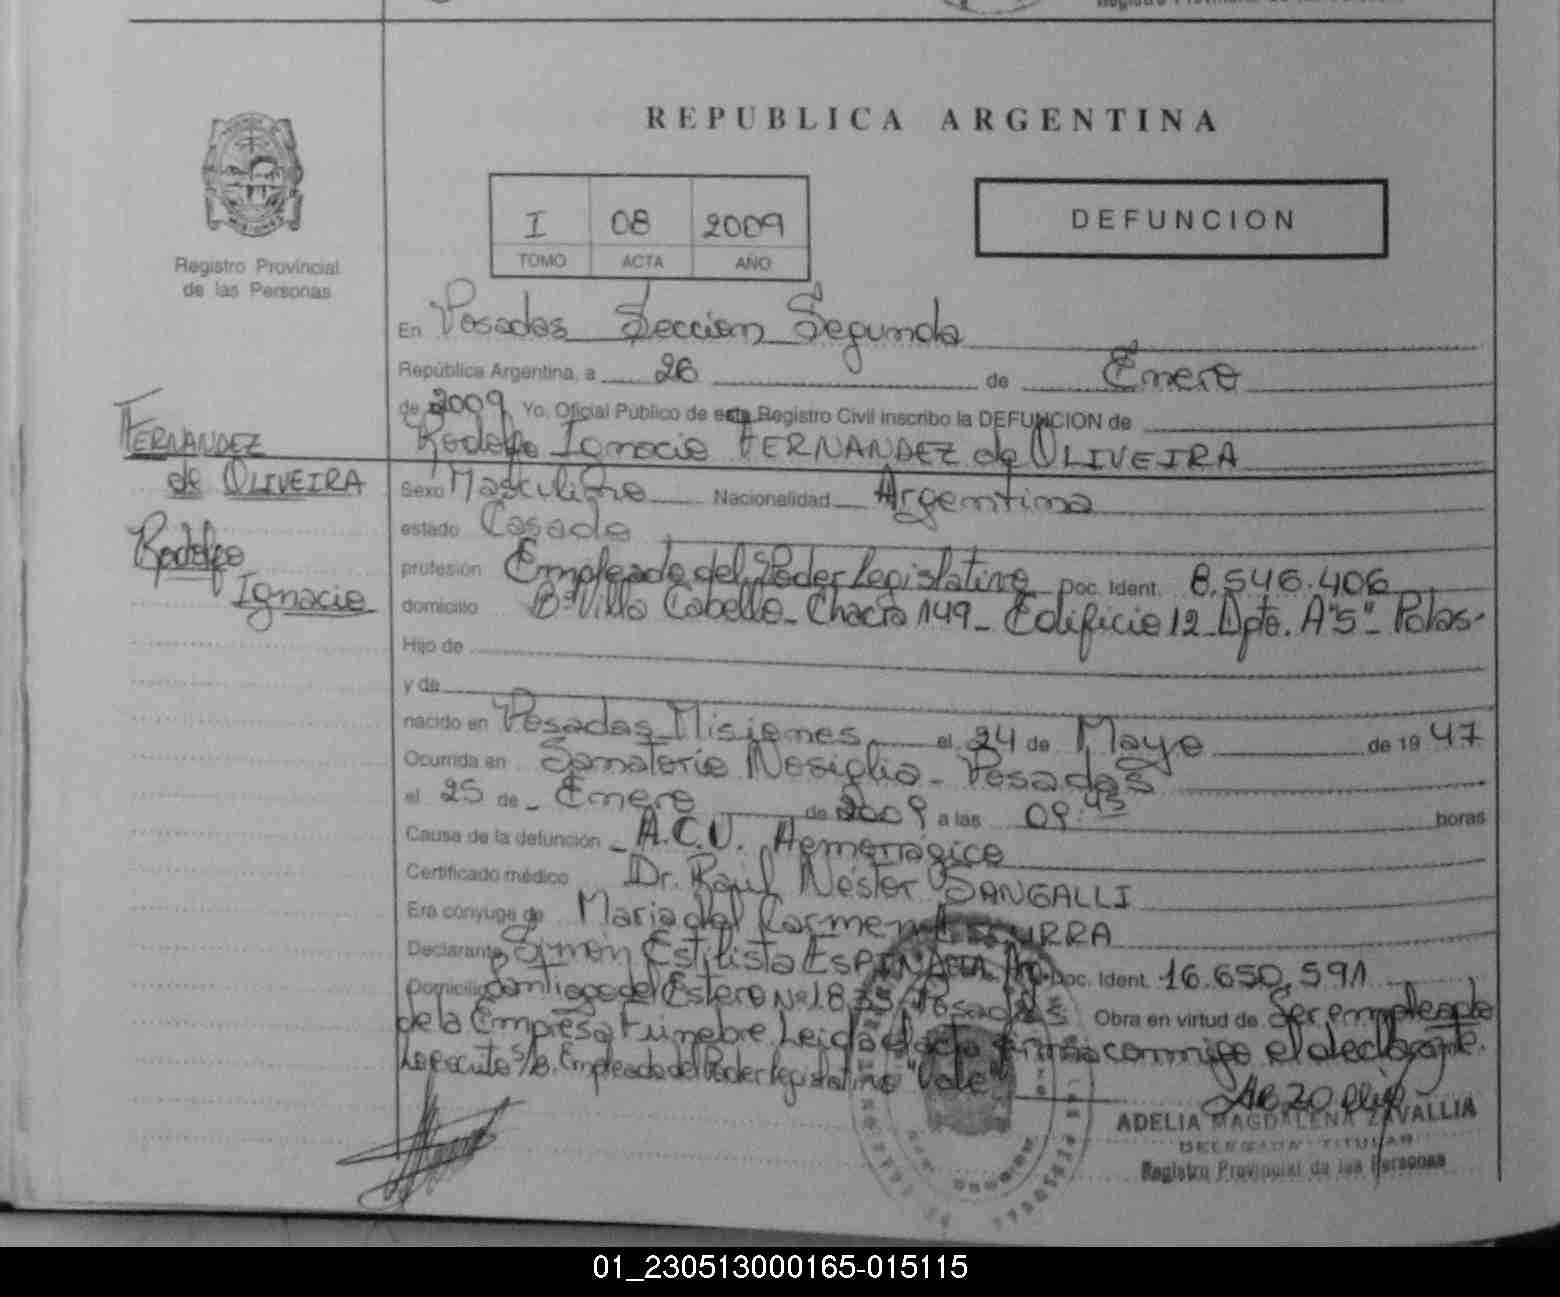 REPUBLICA ARGENTINA
Registro Provincial
de las Personas
I 08 2009
TOMO ACTA AÑO
DEFUNCION
En Posadas Seccion Segunda
República Argentina, a 26 de Enero
de 2009 Yo, Oficial Público de este Registro Civil inscribo la DEFUNCION de
Rodolfo Ignacio FERNANDEZ de OLIVEIRA
FERNANDEZ
de OLIVEIRA
Rodolfo
Ignacio
Sexo Masculino Nacionalidad Argentina
estado Casado
profesión Empleado del Poder Legislativo Doc. Ident. 8.546.406
domicilio B° Villa Cabello - Chacra 149 - Edificio 12 - Dpto. A"5" - Pdas-
Hijo de
y de
nacido en Posadas Misiones el 24 de Mayo de 19 47
Ocurrida en Sanatorio Nosiglia - Posadas
el 25 de Enero de 2009 a las 09:45 horas
Causa de la defunción A.C.V. Hemorrágico
Certificado médico Dr. Raúl Néstor SANGALLI
Era cónyuge de Maria del Carmen
Declarante Simón Estilista Doc. Ident. 16.650.591
Domicilio Santiago del Estero N° 1.835 Posadas Obra en virtud de Ser empleado
de la Empresa Fúnebre. Leida el acta firma conmigo el declarante.
Lo escrito S/B. Empleado del Poder Legislativo "Vale"
ADELIA MAGDALENA ZAVALLIA
DELEGADA TITULAR
Registro Provincial de las Personas
01_230513000165-015115